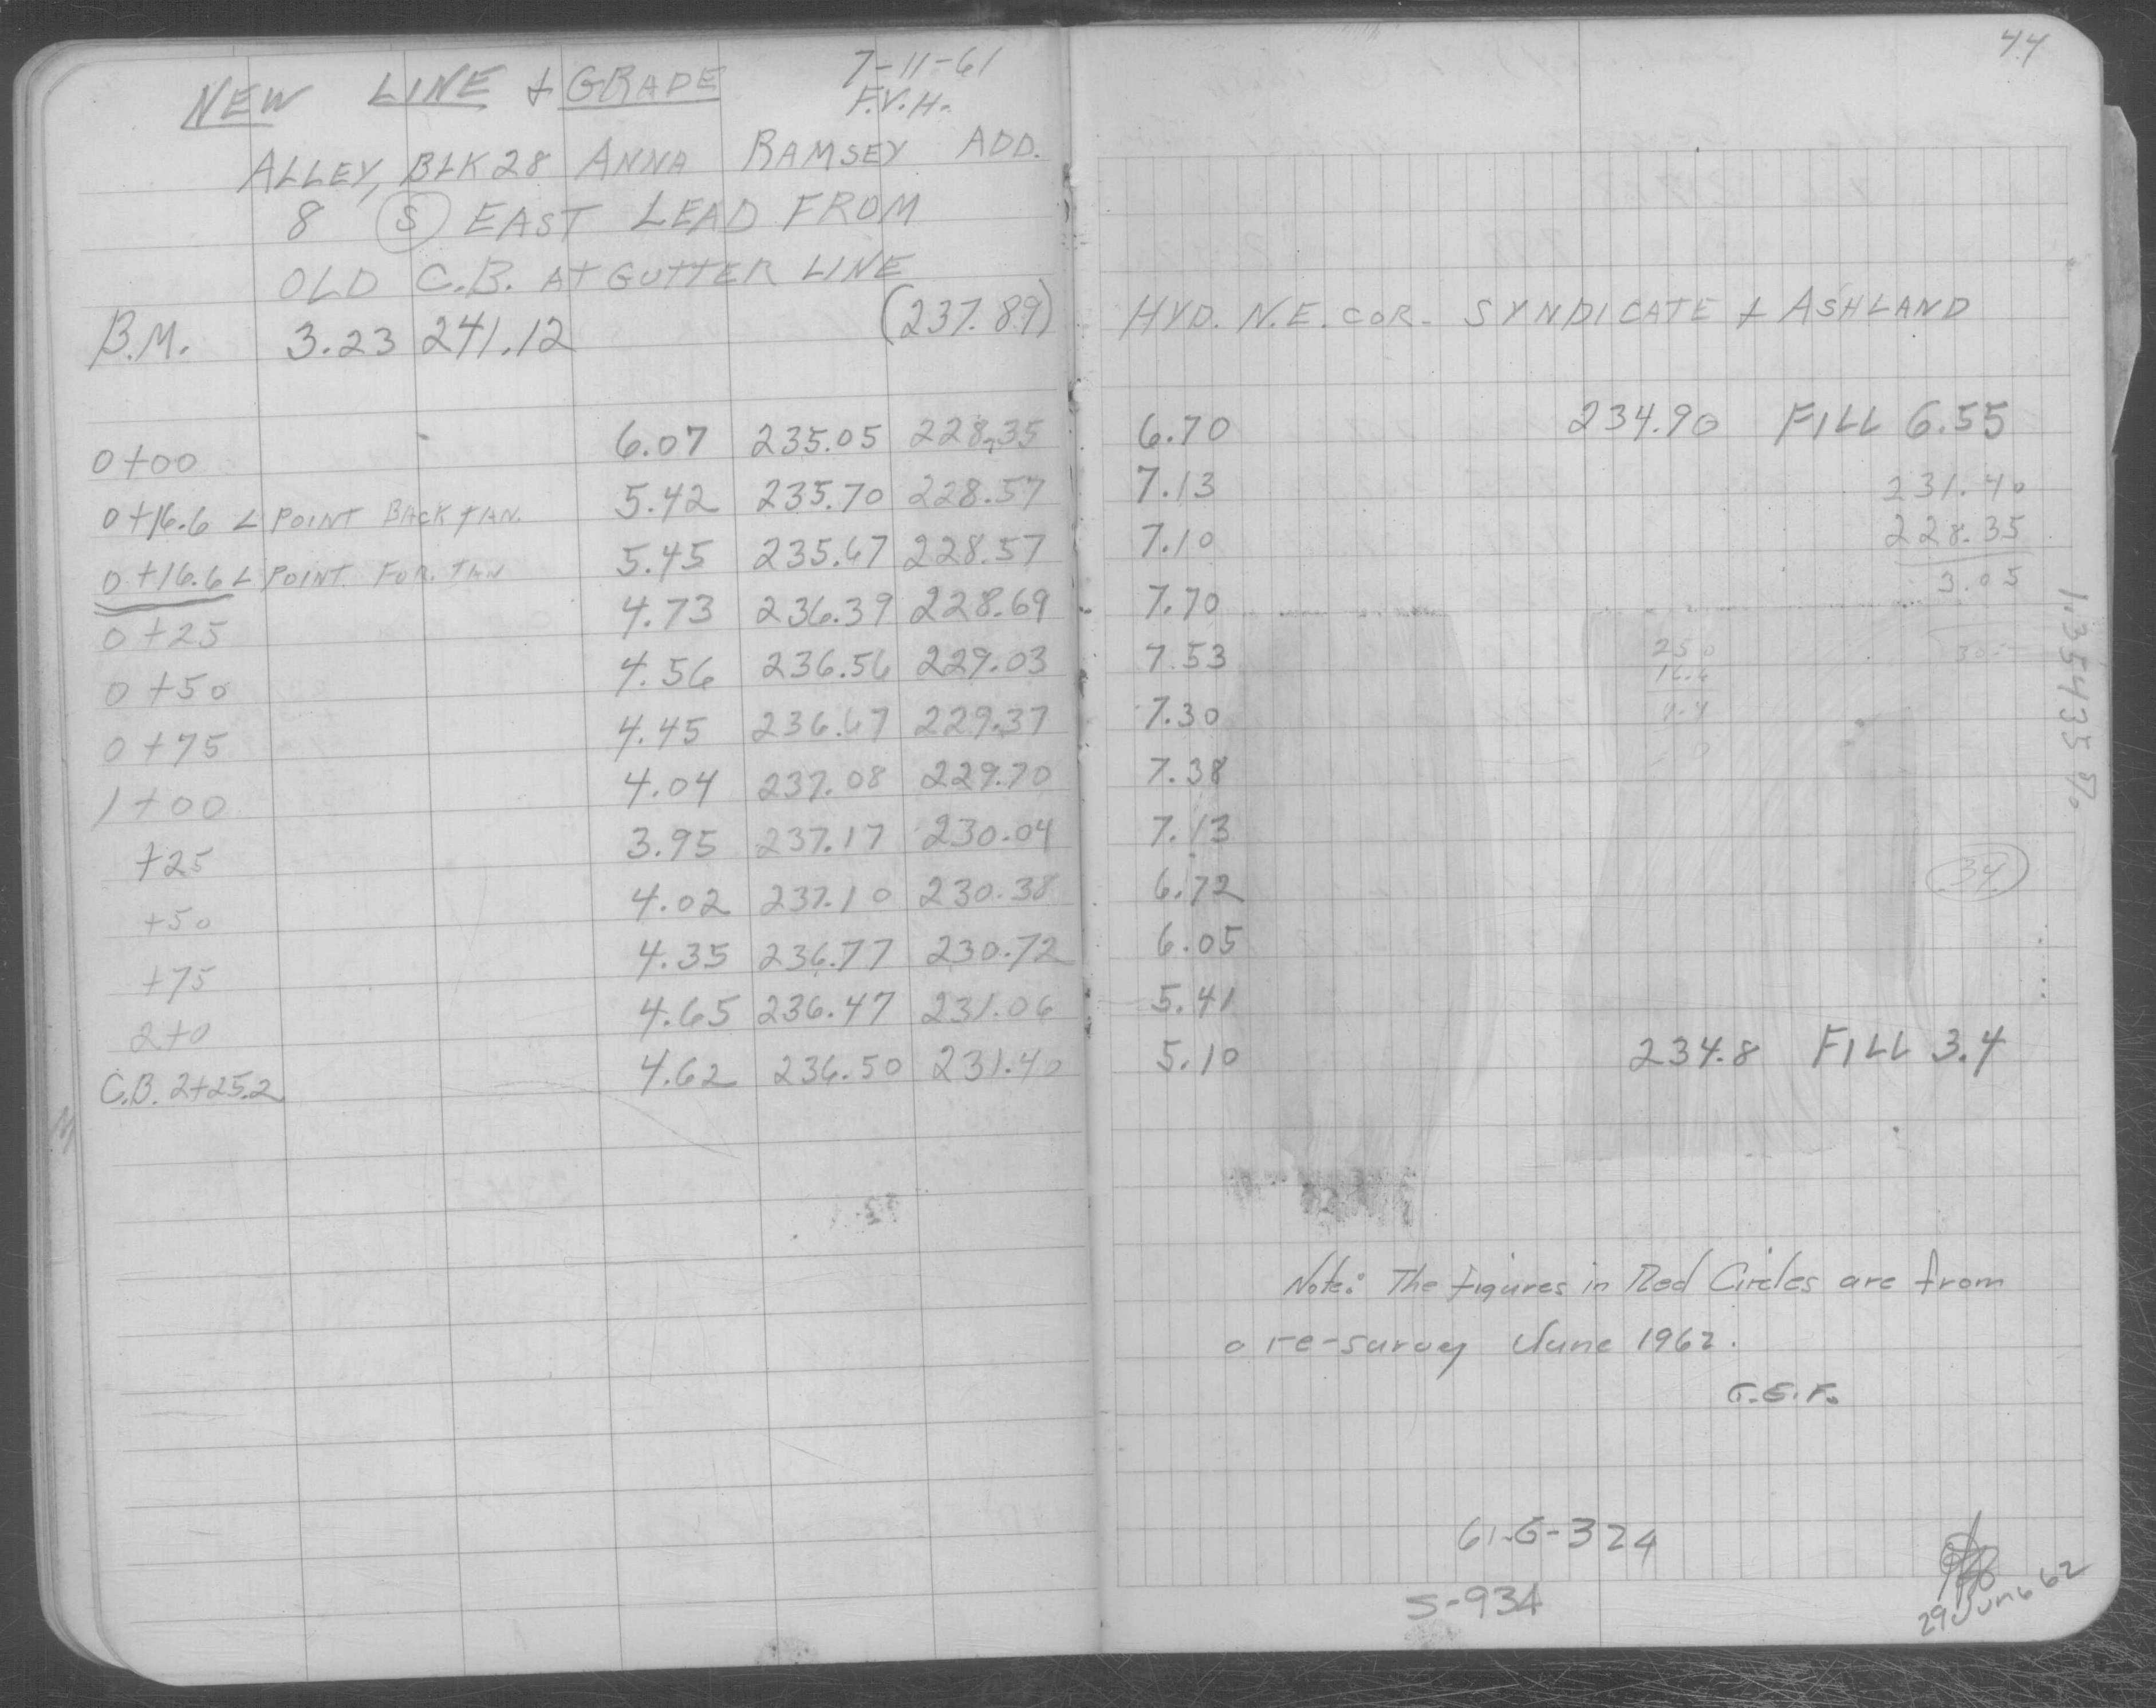 NEW LINE + GRADE 7-11-61
F.V.H.
ALLEY, BLK 28 ANNA RAMSEY ADD.
8 (S) EAST LEAD FROM
OLD C.B. AT GUTTER LINE
B.M. 3.23 241.12 (237.89)
0+00 6.07 235.05 228.35
0+16.6 ∠ POINT BACK TAN. 5.42 235.70 228.57
0+16.6 ∠ POINT FOR. TAN 5.45 235.67 228.57
0+25 4.73 236.39 228.69
0+50 4.56 236.56 229.03
0+75 4.45 236.67 229.37
1+00 4.04 237.08 229.70
+25 3.95 237.17 230.04
+50 4.02 237.10 230.38
+75 4.35 236.77 230.72
2+0 4.65 236.47 231.06
C.B. 2+25.2 4.62 236.50 231.40
44
HYD. N.E. COR. SYNDICATE + ASHLAND
6.70 234.90 FILL 6.55
7.13 231.40
7.10 228.35
3.05
7.70
7.53 25 0
16.6
7.30
7.38
7.13
6.72 34
6.05
5.41
5.10 234.8 FILL 3.4
1.35435 %
Note: The figures in Red Circles are from
a re-survey June 1962.
G.E.F.
61-G-324
S-934
29 June 62